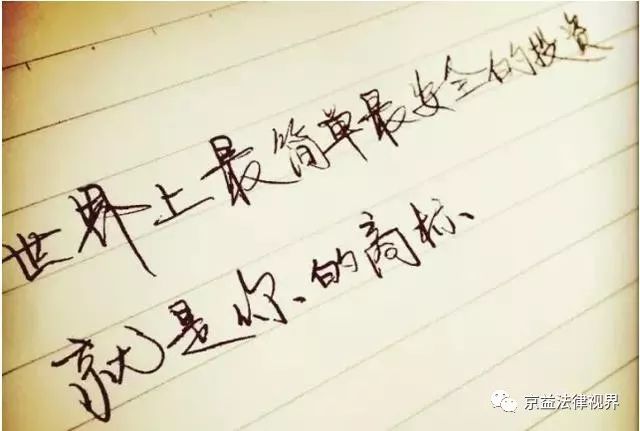 世界上最简单最安全的投资
就是你的商标
京益法律视界